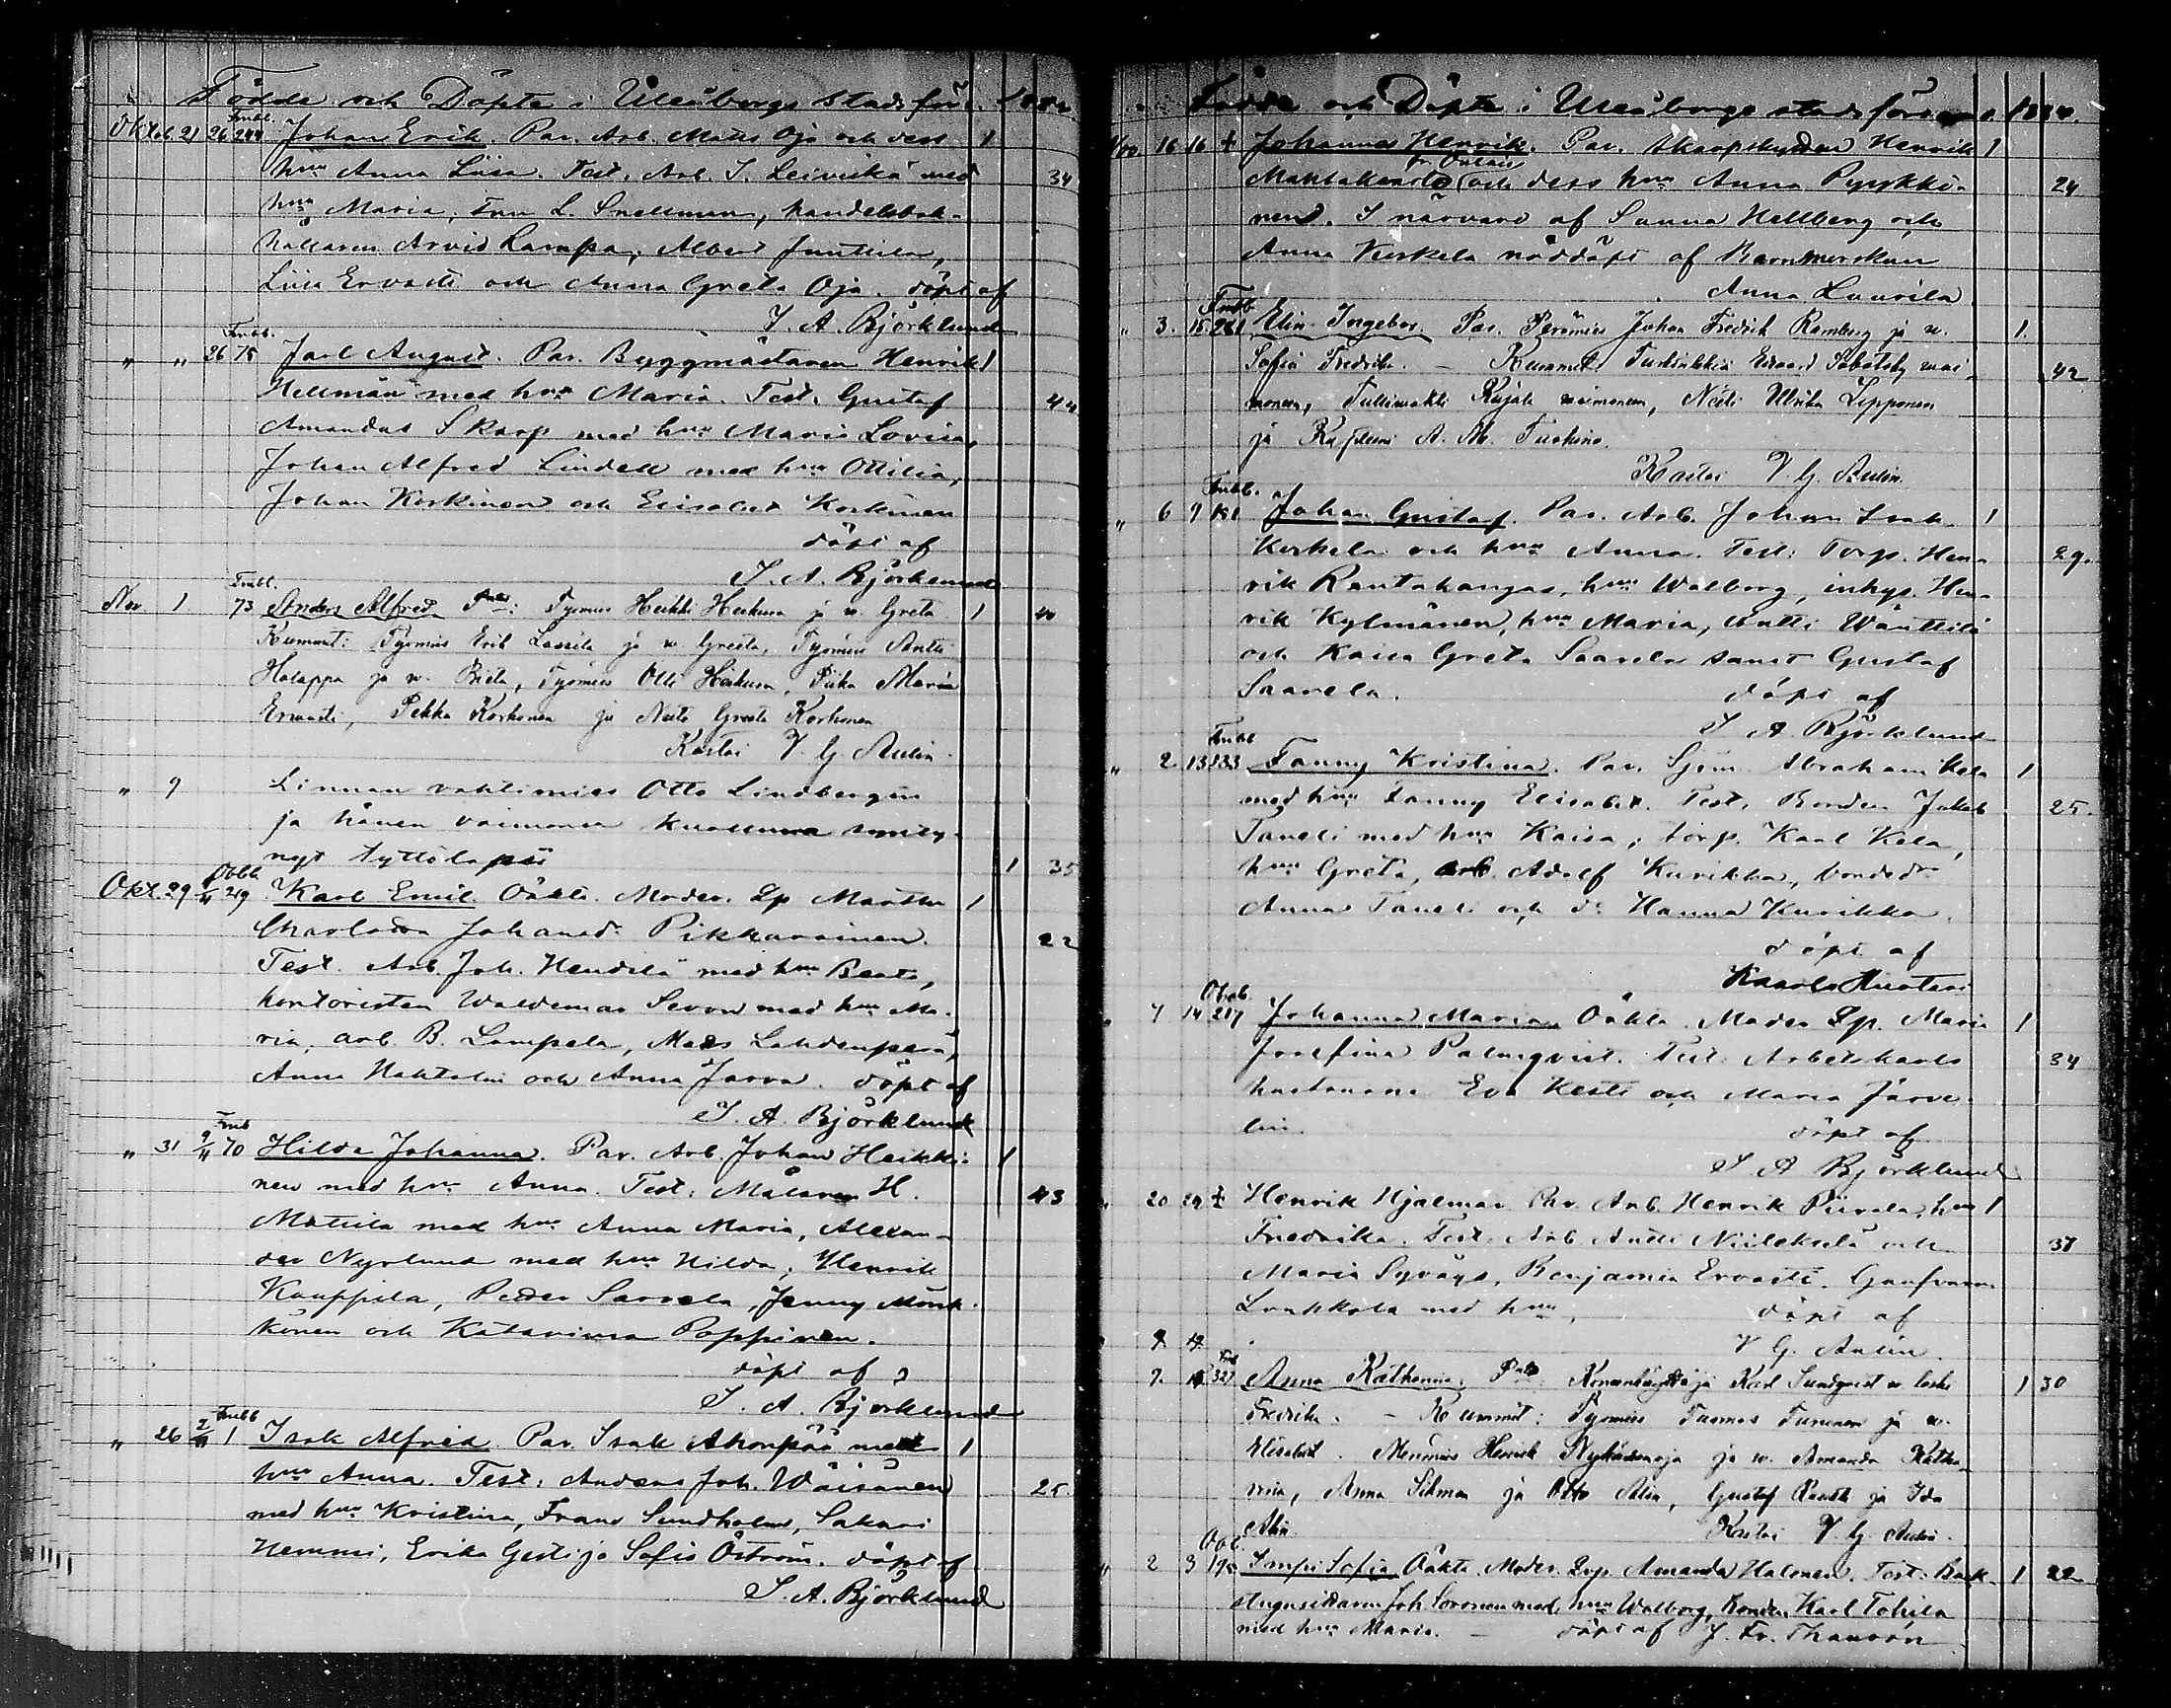 Födde och Döpte i Uleåborgs stadsför
Oktob. 21 26 Frubb. 244 Johan Erik. Par. Arb. Matts Oja och dess 1
hru Anna Liisa. Test. Arb. J. Leiviskä med 34
hru Maria, Fru L. Snellman, handelsbok-
hållaren Arvid Lampa, Albert Junttila,
Liisa Ervasti och Anna Greta Oja. döpt af
J. A. Björklund
" " 26 Frubb. 75 Jarl August. Par. Byggmästaren Henrik 1
Hellman med hru Maria. Test. Gustaf 44
Amandus Skarp med hru Maria Lovisa,
Johan Alfred Lindell med hru Ottilia,
Johan Korkinen och Elisabet Korkinen
döpt af
J. A. Björklund
Nov 1 Frubb. 73 Anders Alfred. Työmies Heikki ja w. Greta 1 40
Kummit: Työmies Erik Lassila ja w. Greeta, Työmies Antti
Halappa ja w. Työmies Olli Maria
Ervasti, Pekka Korhonen ja Neito Greeta Korhonen
Kastoi V. G. Aulin.
" 9 Linnan vahtimies Otto Lindbergin
ja hänen vaimonsa kuolluna synty-
nyt tyttölapsi 1 35
Okt. 29 219 Karl Emil. Oäkta. Moder. Lp Martha 1
Johansdr Pikkarainen. 22
Test. Arb. Joh. Hendelä med hru Beata,
kontoristen Waldemar Sevon med hru Ma-
ria, arb. B. Lampela, Mats Lahdenperä,
Anna och Anna Jarva. döpt af
J. A. Björklund
" 31 9/11 70 Hilda Johanna. Par. Arb. Johan Heikki- 1
nen med hru Anna. Test. Målaren H. 43
Mattila med hru Anna Maria, Alexan-
der Nyrlund med hru Hilda, Henrik
Kauppila, Peder Saarela, Jenny Mönk-
könen och Katarina Poppinen.
döpt af
J. A. Björklund
" 26 2/11 Frubb 1 Isak Alfred. Par. Isak Ahonpää med 1
hru Anna. Test: Anders Joh. Wäisänen 25.
med hru Kristina, Frans Sundholm, Sakari
Hemmi, Erika Sofia Öström. döpt af
J. A. Björklund
Födde och Döpte i Uleåborgs stadsförsaml. 1884.
16 16 + Johannes Henrik. Par. Skarpskytten Henrik 1
och dess hru Anna Pyykkö- 24
nen. I närvaro af Sanna Hellberg och
Anna Kerkelä nöddöpt af Barnmorskan
Anna Laurila.
" 3. 15 Frubb 261 Elin Ingeborg. Par. Perämies Johan Fredrik Ramberg ja w. 1.
Sofia Fredrika. – Kummit: Edvard vai- 42
monsa, Tullivahti Kujala vaimonsa, Neiti Ulrika Lipponen
ja Kapteeni A. M. Tuohino.
Kastoi V. G. Aulin.
" 6 9 Frubb. 181 Johan Gustaf. Par. Arb. Johan Isak 1
Kerkelä och hru Anna. Test: Torp. Hen- 29.
rik Rantakangas, hru Walborg, inhys. Hen-
rik Kylmänen, hru Maria, Antti Wänttilä
och Kaisa Greta Saarela samt Gustaf
Saarela. döpt af
J. A. Björklund
" 2. 13 Frubb 133 Fanny Kristina. Par. Sjöm. Abraham Kela 1
med hru Fanny Elisabet. Test. Bonden Jakob 25.
Taneli med hru Kaisa, torp. Karl Kela,
hru Greta, arb. Adolf Kurikka, bondedr
Anna Taneli och dr Hanna Kurikka.
döpt af
" 7 14 217 Johanna Maria. Oäkta. Moder Lp. Maria 1
Josefina Palmqvist. Test. Arbetskarls 34
hustrurna Eva Kesti och Maria Järve-
lin. döpt af
J. A. Björklund
" 20 29 + Henrik Hjalmar. Par. Arb. Henrik Piirala, hru 1
Fredrika. Test. Arb. Antti och 37
Maria Benjamin Ervasti. Garfvaren
Luukkola med hru, döpt af
V. G. Aulin.
9 19
7. 327 Anna Katharina. Karl Sundqvist w. 1 30
Fredrika. – Kummit: Työmies Tuomas Turunen ja w.
Elisabet. Merimies Henrik ja w. Amanda Katha-
rina, Anna Silman ja Otto Alin, Gustaf ja Ida
Alin. Kastoi V. G. Aulin.
" 2 3 190 Impi Sofia. Oäkta. Moder. Lp. Amanda Halonen. Test: Back- 1 22
stugusittaren Joh. Soronen med hru Walborg, bonden Karl Tohila
med hru Maria. – döpt af J. Fr. Thauvón